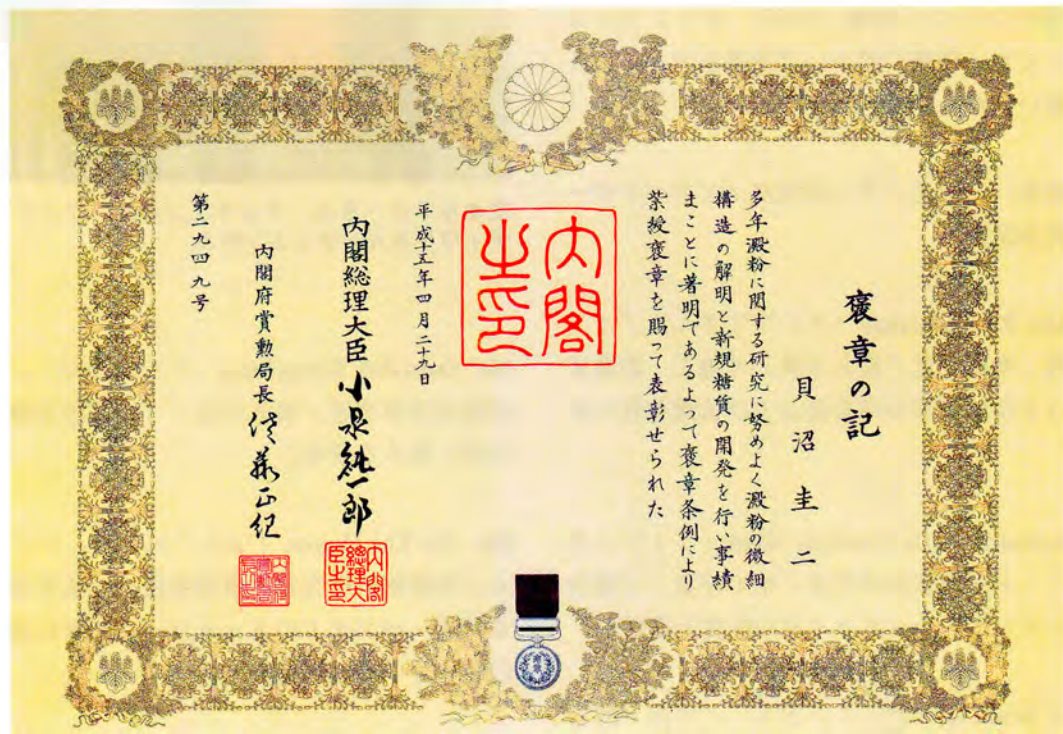 褒章の記
貝沼圭二
多年澱粉に関する研究に努めよく澱粉の微細
構造の解明と新規糖質の開発を行い事績
まことに著明であるよって褒章条例により
紫綬褒章を賜って表彰せられた
内閣
之印
平成十五年四月二十九日
内閣総理大臣 小泉純一郎
内閣総理大臣之印
内閣府賞勲局長 佐藤正紀
第二九四九号